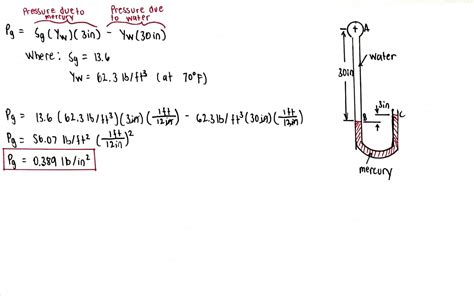 Pressure due to mercury
Pressure due to water
Pg = Sg(γw)(3in) - γw(30in)
Where: Sg = 13.6
γw = 62.3 lb/ft³ (at 70°F)
Pg = 13.6 (62.3 lb/ft³)(3in)(1ft/12in) - 62.3 lb/ft³(30in)(1ft/12in)
Pg = 56.07 lb/ft² (1ft/12in)²
Pg = 0.389 lb/in²
A
water
30in
3in
B
C
mercury